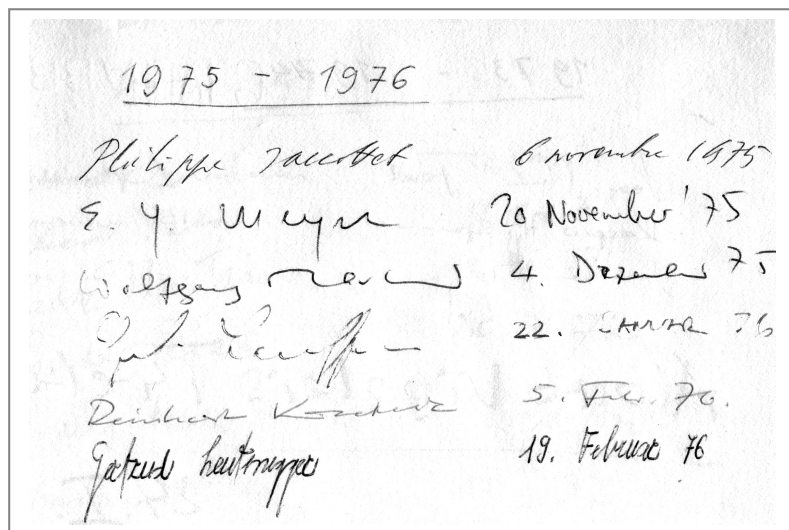 1975 - 1976
Philippe Jaccottet 6 novembre 1975
E. Y. Meyer 20 November '75
Wolfgang 4. Dezember 75
22. Januar 76
Reinhart 5. Febr. 76.
Gertrud Leutenegger 19. Februar 76